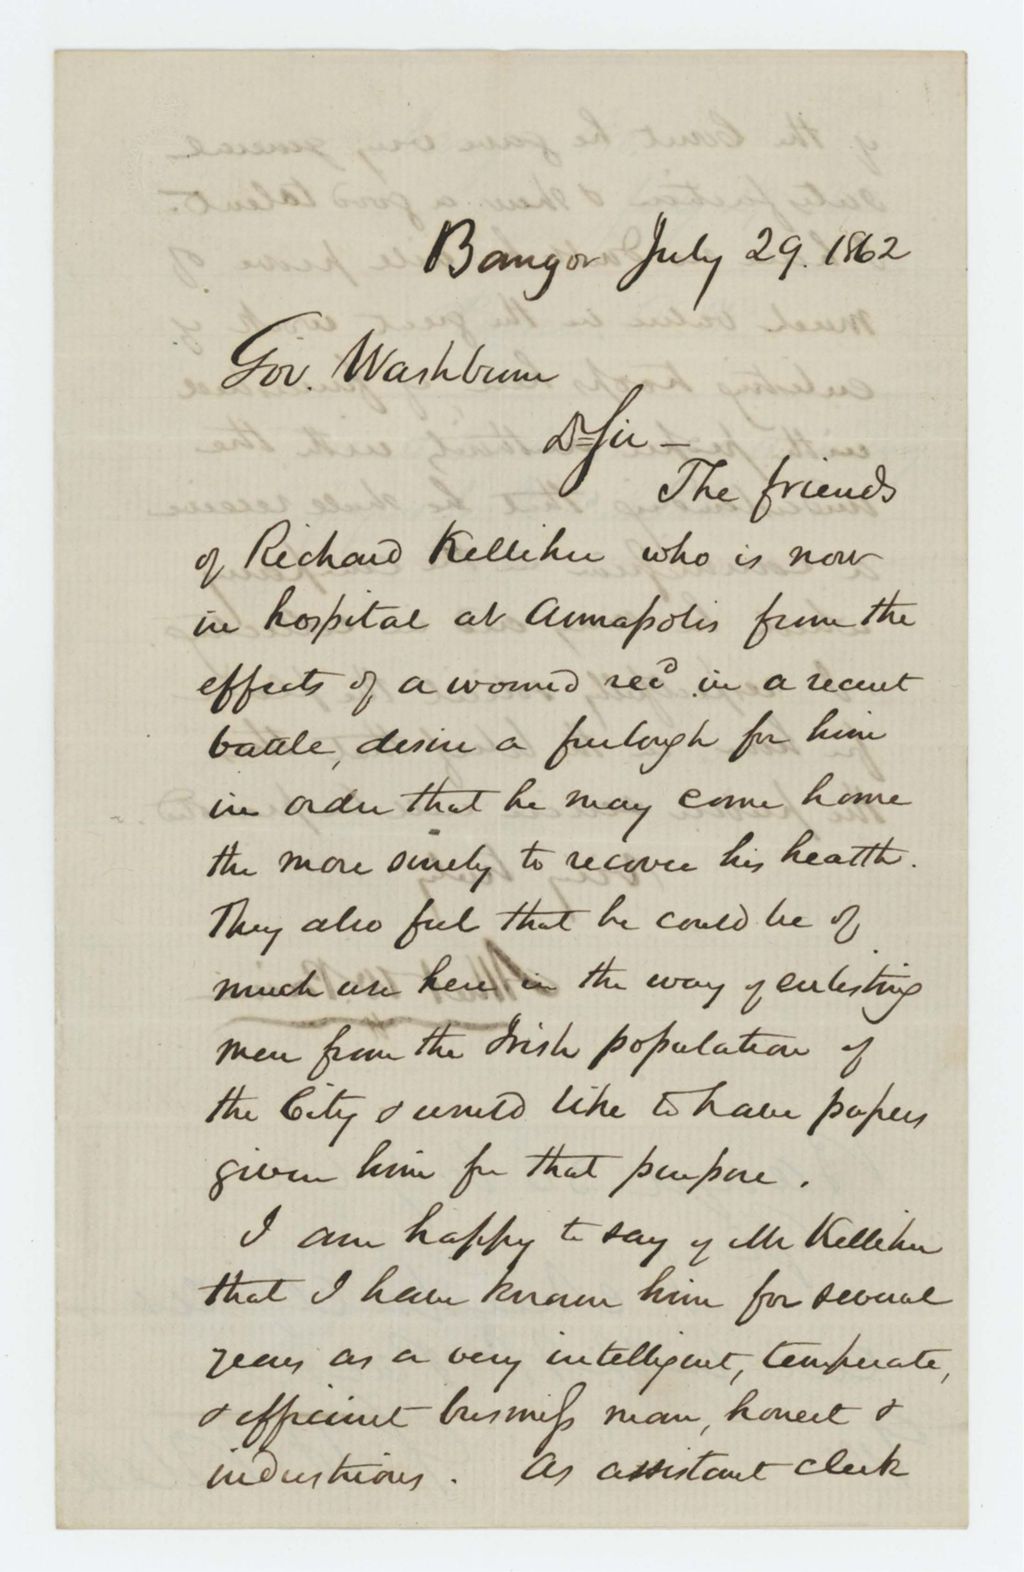 Bangor July 29. 1862
Gov. Washburn
Dr Sir —
The friends
of Richard Kelliher who is now
in hospital at Annapolis from the
effects of a wound recd in a recent
battle, desire a furlough for him
in order that he may come home
the more surely to recover his health.
They also feel that he could be of
much use here in the way of enlisting
men from the Irish population of
the City & would like to have papers
given him for that purpose.
I am happy to say of Mr Kelliher
that I have known him for several
years as a very intelligent, temperate,
& efficient business man, honest &
industrious. As assistant clerk